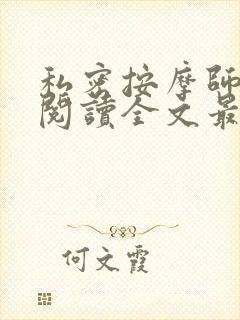 私密按摩師
閱讀全文最
何文霞